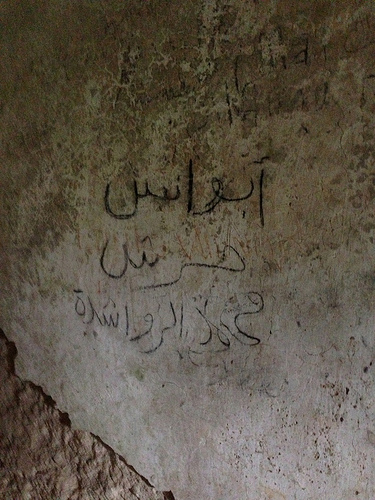 أبو انس
جرش
محمد الرواشدة